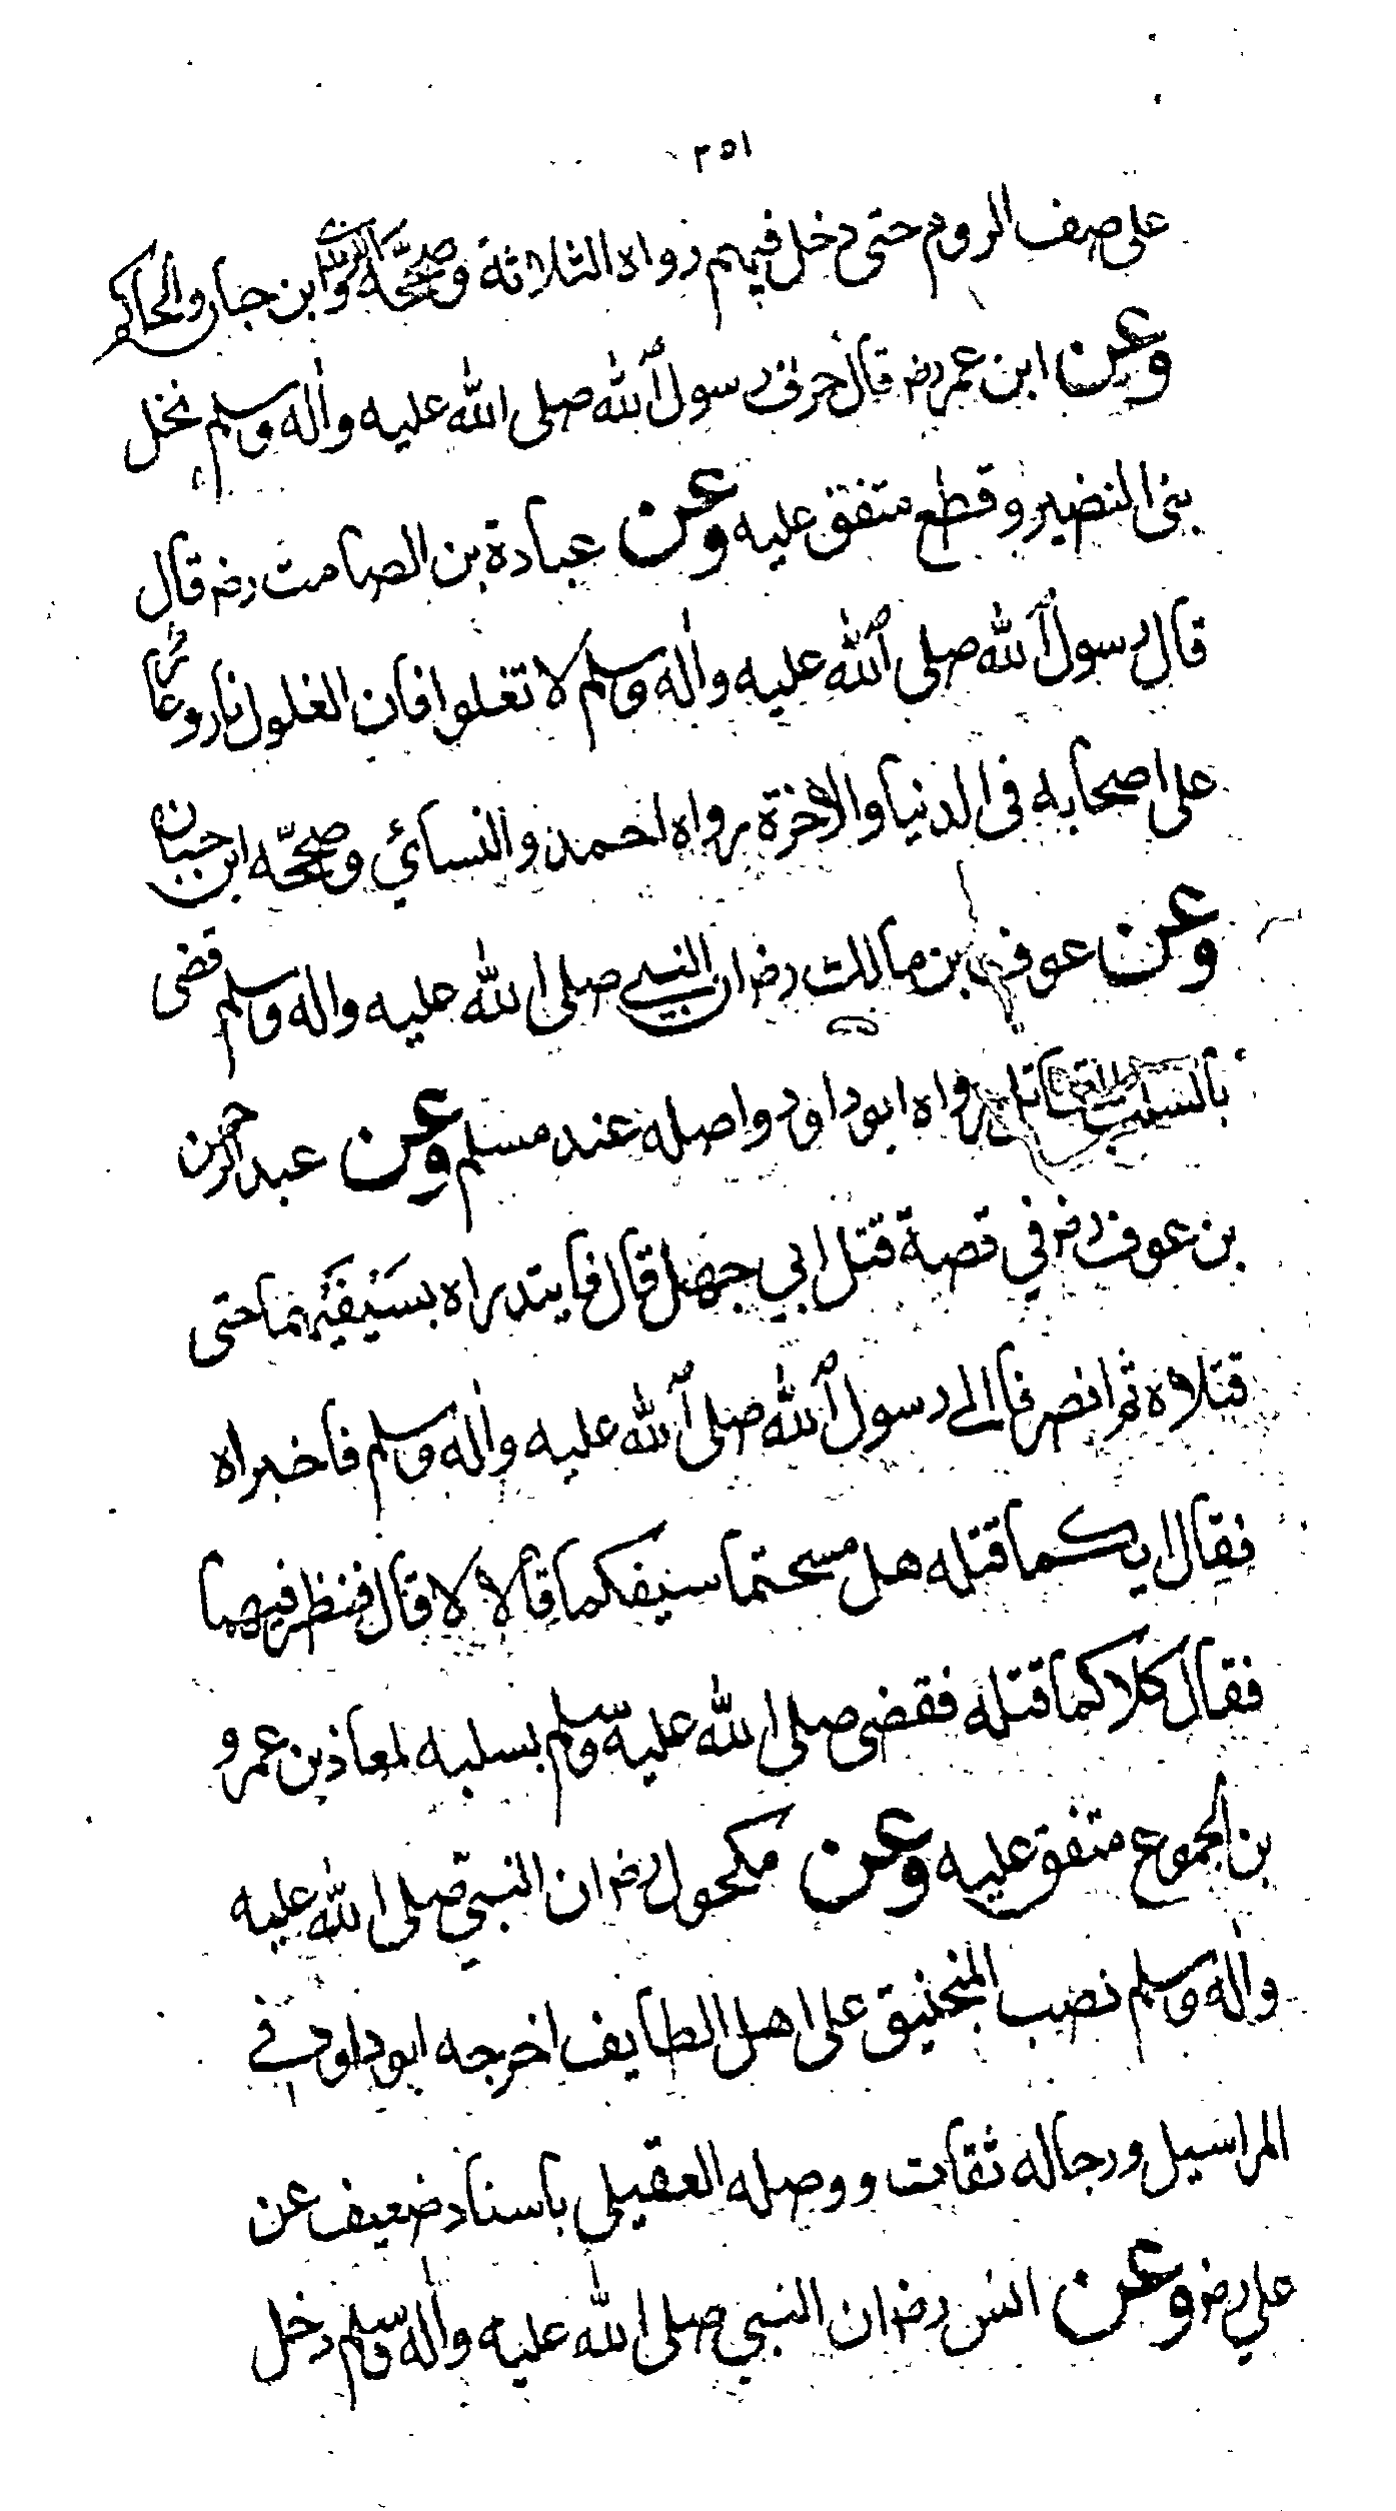 ٢٥١
على صف الروم حتى دخل فيهم رواه الثلاثة وصححه الترمذي وابن حبان والحاكم
وعن ابن عمر رضه قال حرق رسول الله صلى الله عليه واله وسلم نخل
بنى النضير وقطع متفق عليه وعن عبادة بن الصامت رضه قال
قال رسول الله صلى الله عليه واله وسلم لا تغلوا فان الغلول نار وعار
على اصحابه فى الدنيا والاخرة رواه احمد والنسائي وصححه ابن حبان
وعن عوف بن مالك رضه ان النبي صلى الله عليه واله وسلم قضى
بالسلب للقاتل رواه ابو داود واصله عند مسلم وعن عبد الرحمن
بن عوف رضه في قصة قتل ابي جهل قال فابتدراه بسَيْفَيْهِما حتى
قتلاه ثم انصرفا الى رسول الله صلى الله عليه واله وسلم فاخبراه
فقال ايكما قتله هل مسحتما سيفكما قالا لا قال فنظر فيهما
فقال كلاكما قتله فقضى صلى الله عليه وسلم بسلبه لمعاذ بن عمرو
بن الجموع متفق عليه وعن مكحول رضه ان النبي صلى الله عليه
واله وسلم نصب المنجنيق على اهل الطايف اخرجه ابو داود في
المراسيل ورجاله ثقات ووصله العقيلى باسناد ضعيف عن
علي رضه وعن انس رضه ان النبي صلى الله عليه واله وسلم دخل